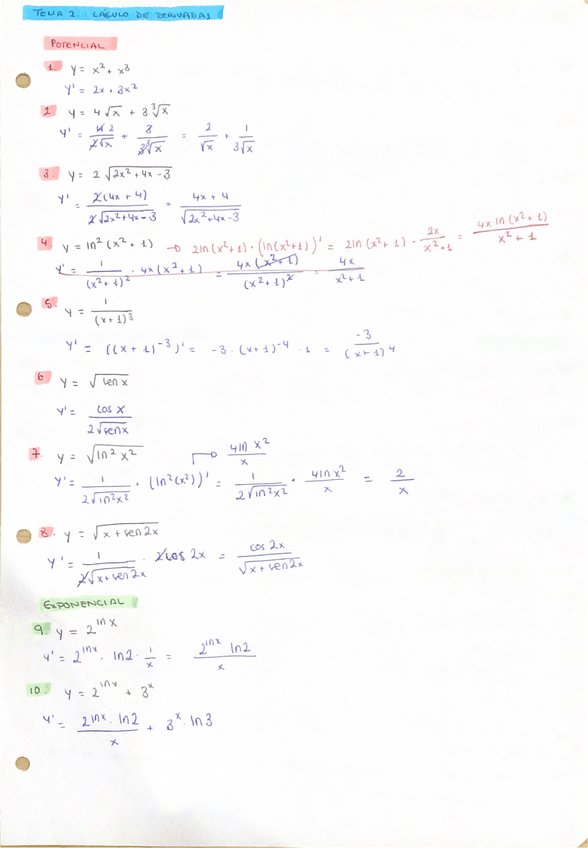 TEMA 2: CÁLCULO DE DERIVADAS
POTENCIAL
1. y = x² + x³
y' = 2x + 3x²
2 y = 4√x + 3∛x
y' = 4 2 / 2√x + 3 / 3∛x = 2/√x + 1/3√x
3. y = 2 √(2x² + 4x - 3)
y' = 2(4x + 4) / 2√(2x² + 4x - 3) = 4x + 4 / √(2x² + 4x - 3)
4. y = ln² (x² + 1) → 2ln(x²+1) · (ln(x²+1))' = 2ln(x²+1) · 2x/x²+1 = 4x ln(x²+1) / x² + 1
y' = 1/(x²+1)² · 4x(x²+1) = 4x(x²+1)/(x²+1)² = 4x/x²+1
5. y = 1/(x+1)³
y' = ((x+1)⁻³)' = -3 · (x+1)⁻⁴ · 1 = -3/(x+1)⁴
6 y = √sen x
y' = cos x / 2√sen x
7. y = √ln² x² → 4 ln x² / x
y' = 1/2√ln²x² · (ln²(x²))' = 1/2√ln²x² · 4 ln x²/x = 2/x
8. y = √x + sen 2x
y' = 1/2√x + sen 2x · 2cos 2x = cos 2x/√x + sen 2x
EXPONENCIAL
9. y = 2^ln x
y' = 2^ln x · ln 2 · 1/x = 2^ln x ln 2 / x
10. y = 2^ln x + 3^x
y' = 2^ln x · ln 2 / x + 3^x · ln 3